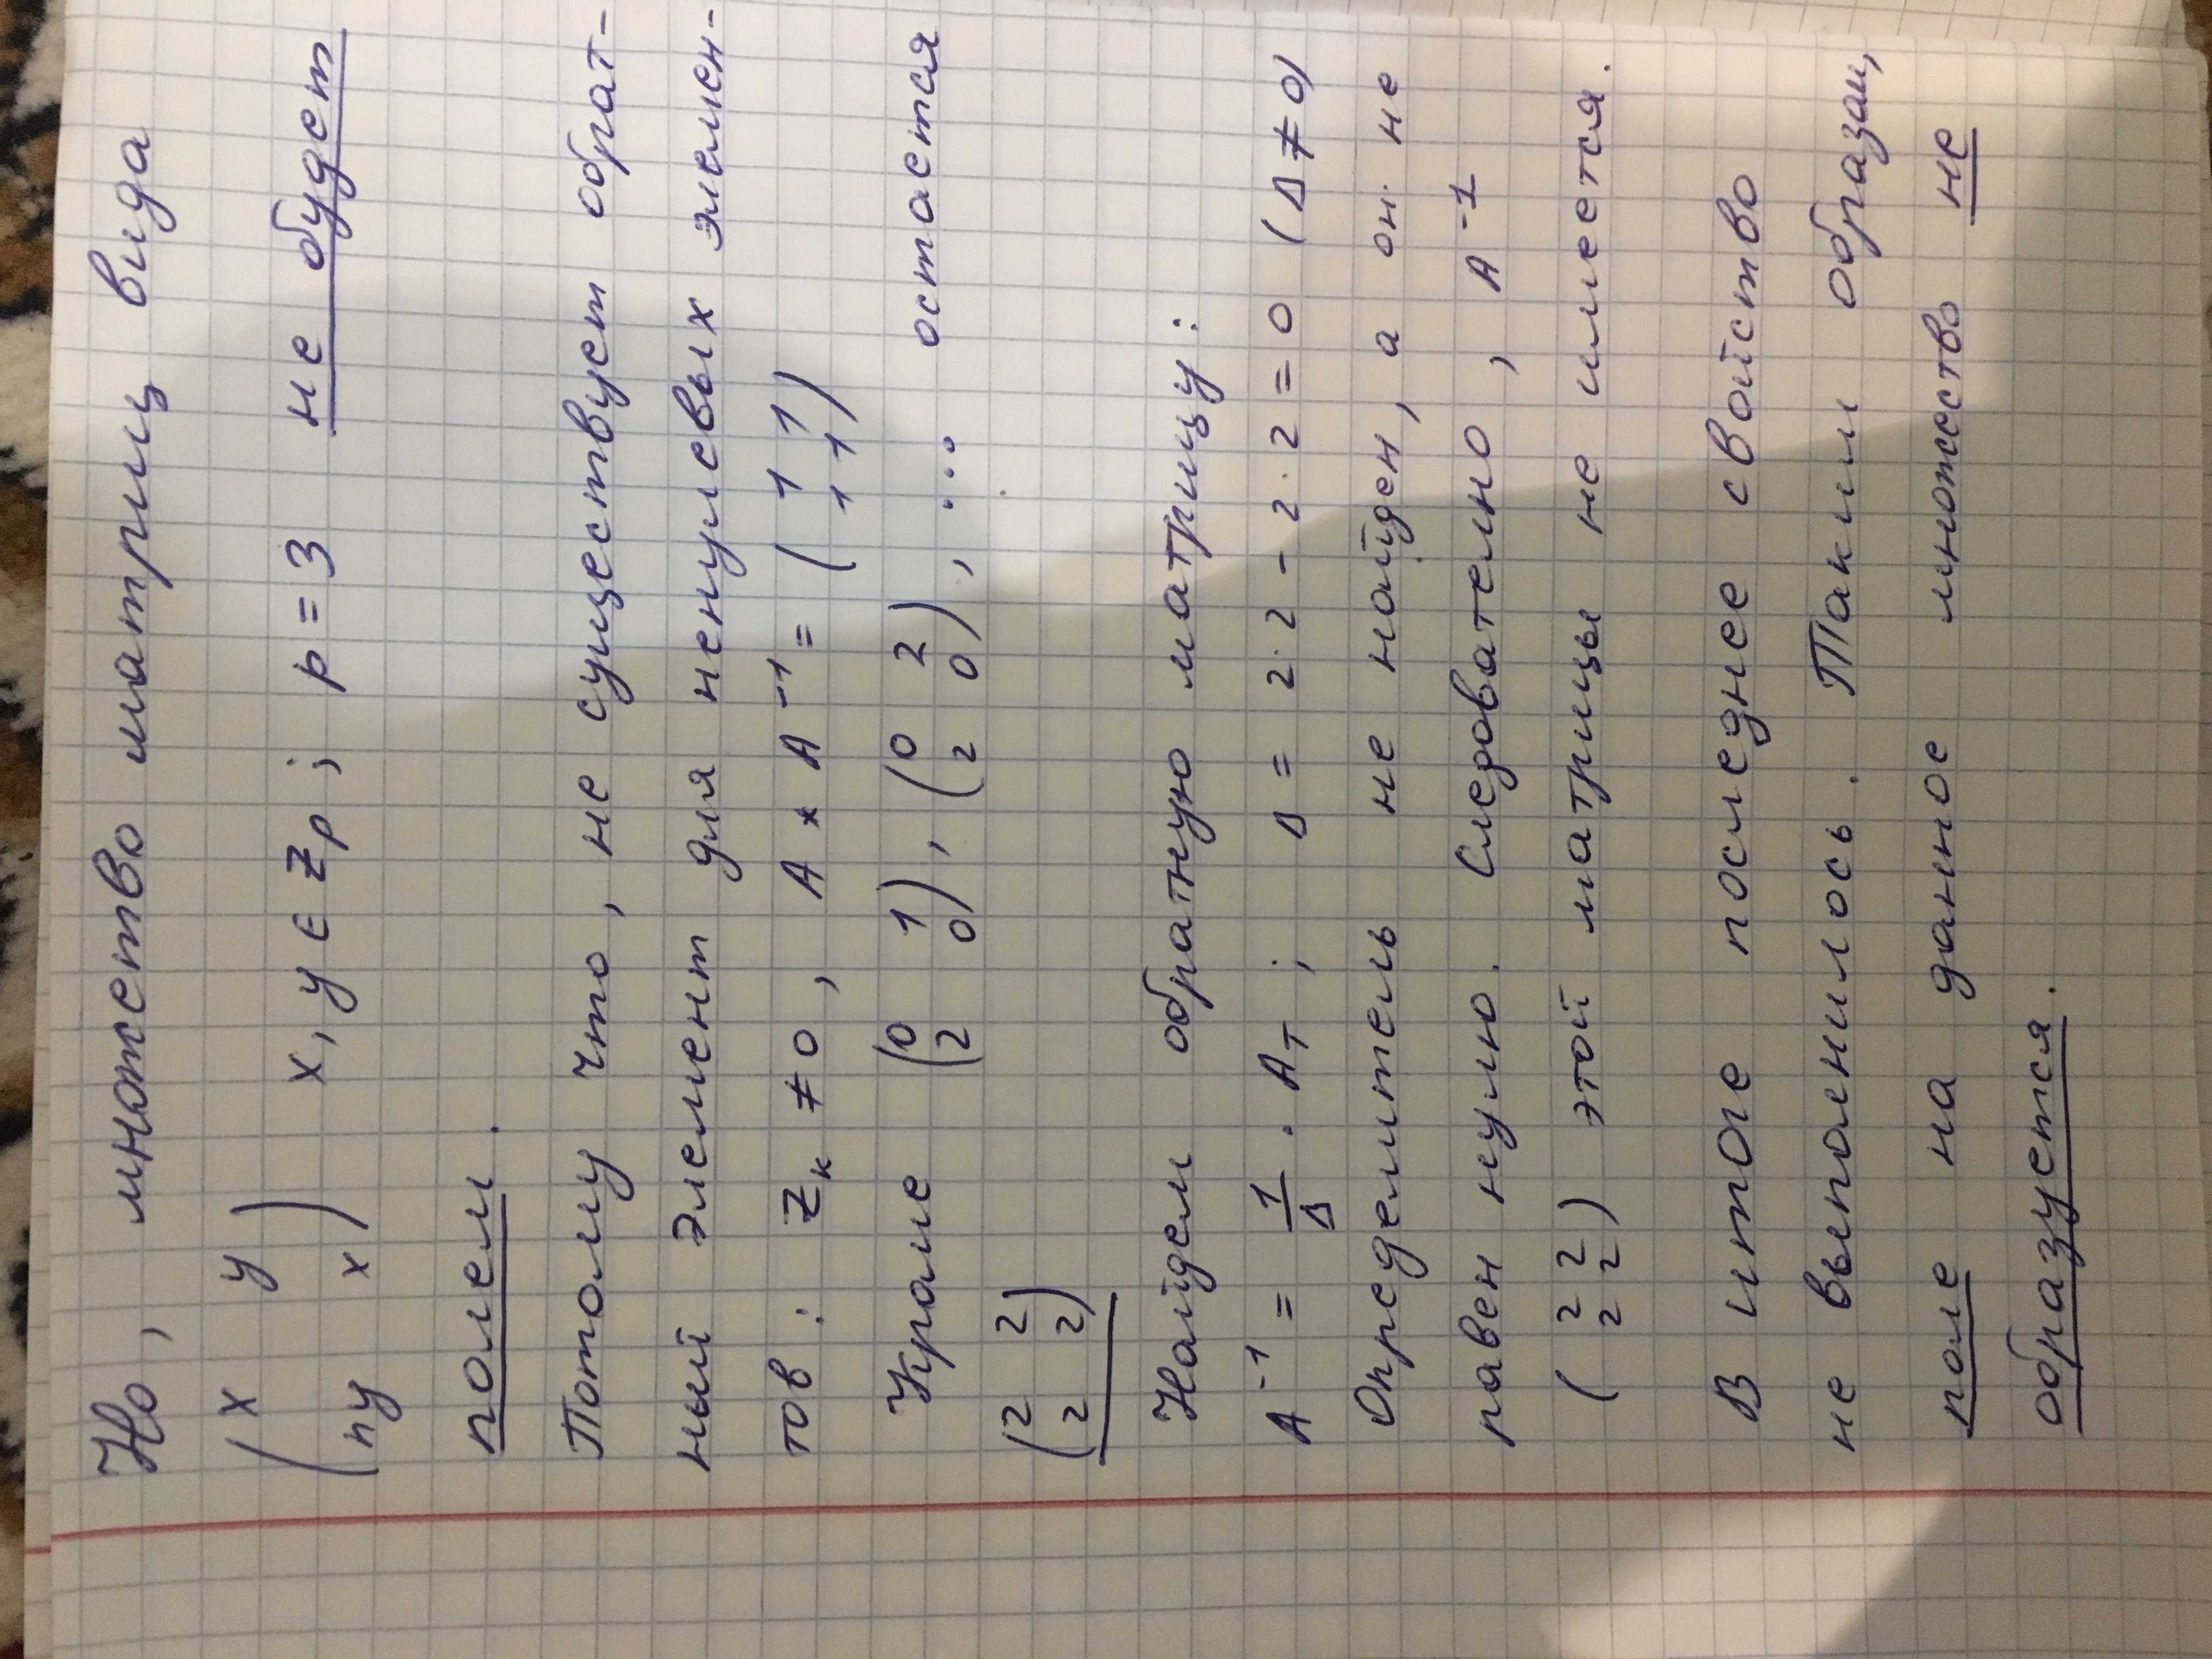 Но, множество матриц вида
( x y
ny x ) x, y ∈ Zp ; p = 3 не будет
полем.
Потому что, не существует обрат-
ный элемент для ненулевых элемен-
тов : Zк ≠ 0 , A * A⁻¹ = ( 1 1
1 1 )
Кроме ( 0 1
2 0 ) , ( 0 2
2 0 ) , ... остается
( 2 2
2 2 )
Найдем обратную матрицу :
A⁻¹ = 1/Δ · Aт ; Δ = 2·2 - 2·2 = 0 (Δ ≠ 0)
Определитель не найден, а он не
равен нулю. Следователно , A⁻¹
( 2 2
2 2 ) этой матрицы не имеется.
В итоге последнее свойство
не выполнилось. Таким образом,
поле на данное множество не
образуется.